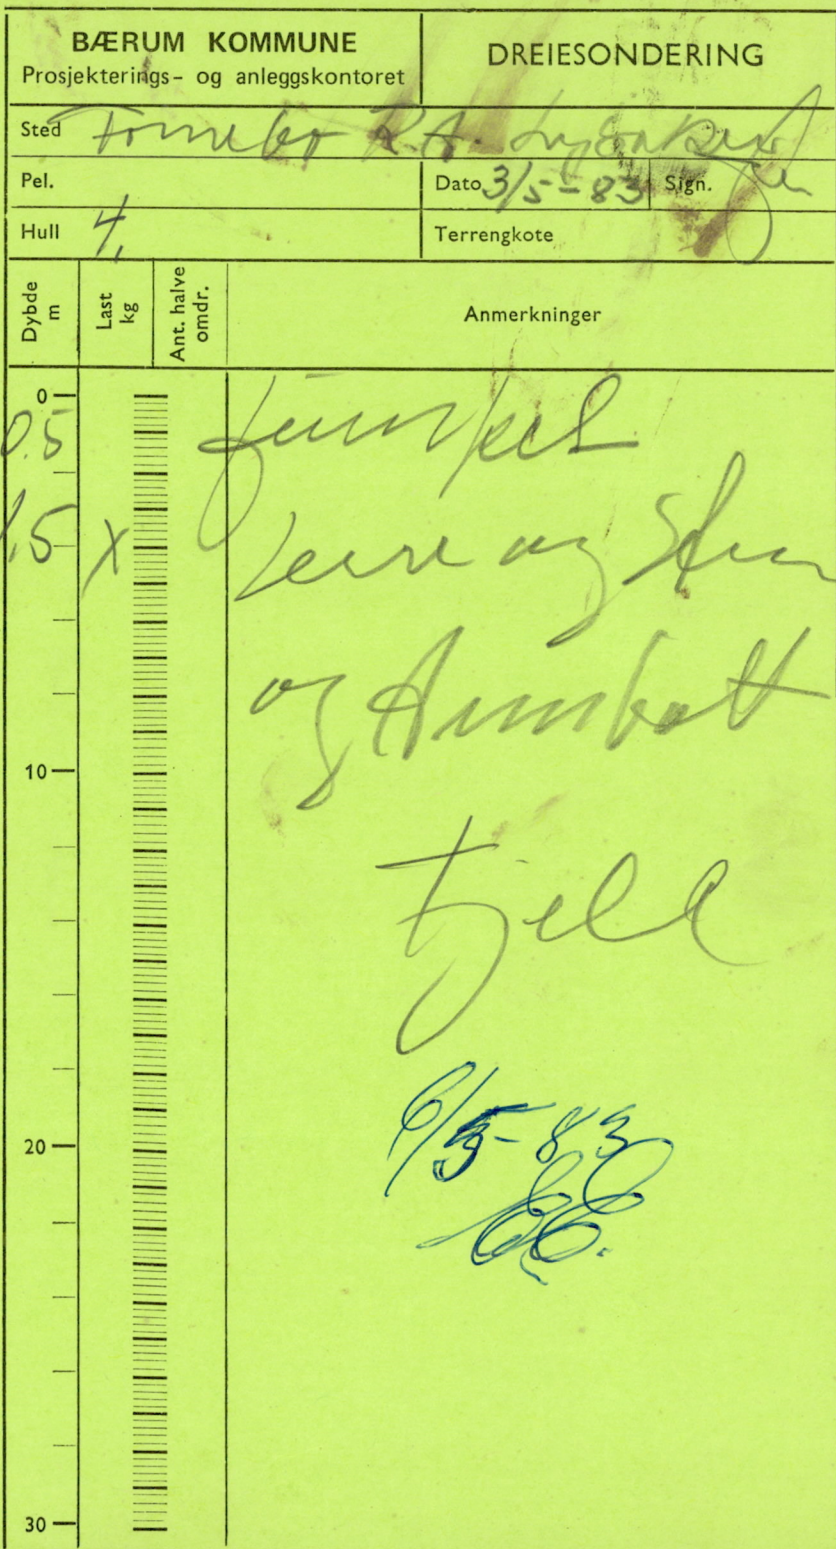 BÆRUM KOMMUNE
Prosjekterings- og anleggskontoret
DREIESONDERING
Sted Fornebo R.A. Lysaker
Pel.
Dato 3/5-83 Sign.
Hull 4,
Terrengkote
Dybde m
Last kg
Ant. halve omdr.
Anmerkninger
0
0.5
1.5 X Leire og Sten
og
10
Fjell
6/5-83
20
30